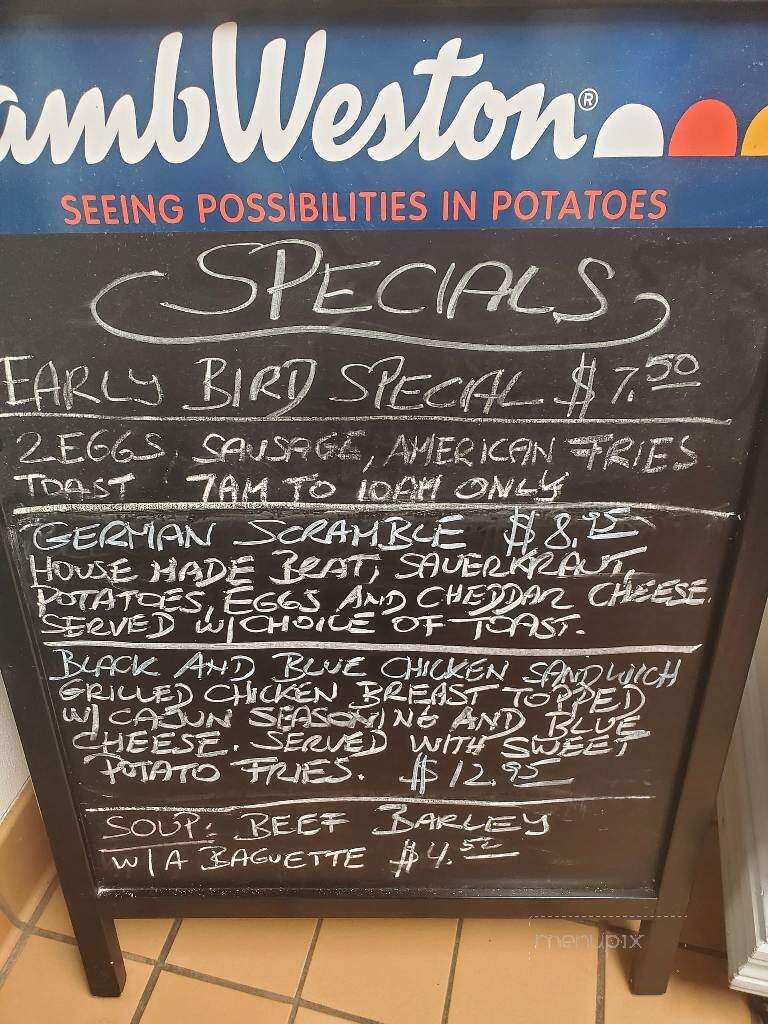 ambWeston®
SEEING POSSIBILITIES IN POTATOES
SPECIALS
EARLY BIRD SPECIAL $7.50
2 EGGS, SAUSAGE, AMERICAN FRIES
TOAST 7AM TO 10AM ONLY
GERMAN SCRAMBLE $8.95
HOUSE MADE BRAT, SAUERKRAUT,
POTATOES, EGGS AND CHEDDAR CHEESE.
SERVED W/ CHOICE OF TOAST.
BLACK AND BLUE CHICKEN SANDWICH
GRILLED CHICKEN BREAST TOPPED
W/ CAJUN SEASONING AND BLUE
CHEESE. SERVED WITH SWEET
POTATO FRIES. $12.95
SOUP: BEEF BARLEY
W/ A BAGUETTE $4.50
menupix